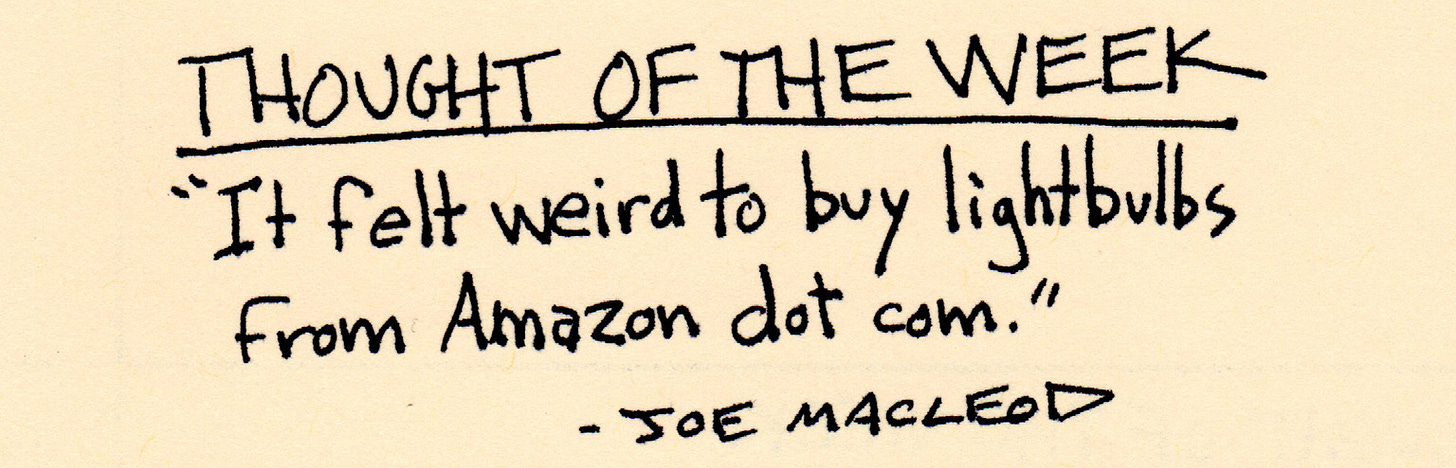 THOUGHT OF THE WEEK
“It felt weird to buy lightbulbs
from Amazon dot com.”
- JOE MACLEOD